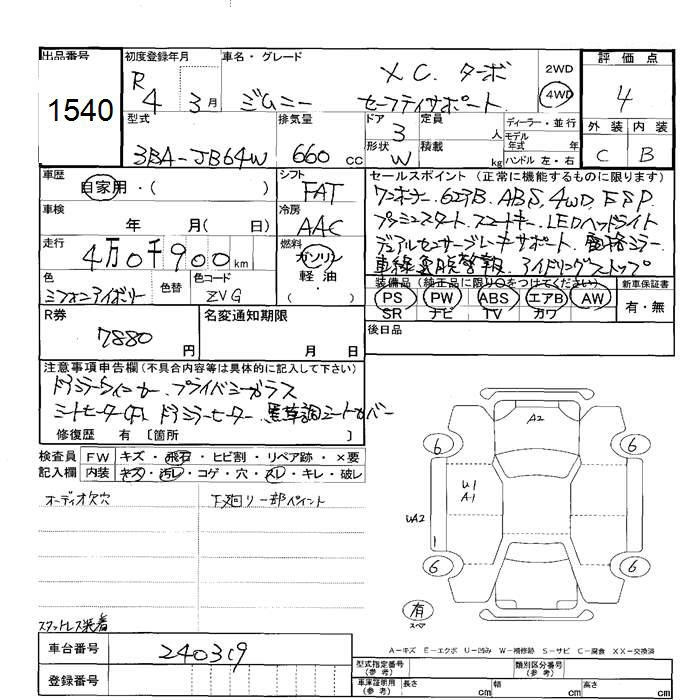 出品番号
1540
初度登録年月
R 4 3月
車名・グレード
ジムニー
XC ターボ
セーフティサポート
2WD
4WD
評価点
4
外装 内装
C B
型式
3BA-JB64W
排気量
660 cc
ドア
3
形状
W
定員
人
積載
kg
ディーラー・並行
モデル
年式 年
ハンドル 左・右
車歴
自家用・( )
車検
年 月( 日)
走行
4万0千900km
色
シフォンアイボリー
色替
色コード
ZVG
シフト
FAT
冷房
AAC
燃料
ガソリン
軽油
( ・ )
セールスポイント (正常に機能するものに限ります)
ワンオーナー. ABS, 4WD, ESP.
プッシュスタート. スマートキー. LEDヘッドライト
デュアルセンサーブレーキサポート. 電格ミラー.
車線逸脱警報. アイドリングストップ
装備品 (純正品に限り○をつけてください)
PS PW ABS エアB AW
SR ナビ TV カワ
新車保証書
有・無
R券
7880 円
名変通知期限
月 日
後日品
注意事項申告欄 (不具合内容等は具体的に記入して下さい)
ドアミラーウィンカー. プライバシーガラス
シートヒーター ドアミラーヒーター. 黒革調シートカバー
修復歴 有 〔箇所 〕
検査員
記入欄
FW キズ・飛石・ヒビ割・リペア跡・×要
内装 キズ・汚レ・コゲ・穴・スレ・キレ・破レ
オーディオ欠穴
下廻り一部ペイント
スタッドレス装着
A2
6 6
U1
A1
UA2
1
6 6
有
スペア
A-キズ E-エクボ U-凹み W-補修跡 S-サビ C-腐食 XX-交換済
車台番号
240319
登録番号
型式指定番号
(参考)
類別区分番号
(参考)
車庫証明用
(参考)
長さ cm 幅 cm 高さ cm